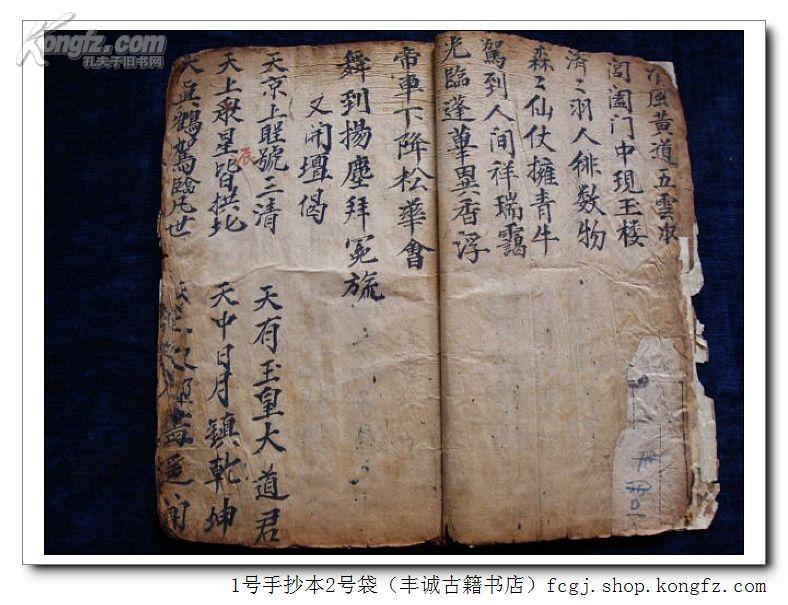 Kongfz.com
孔夫子旧书网
風黃道五雲
閶闔门中現玉楼
濟〻羽人徘数物
森〻仙仗擁青牛
駕到人间祥瑞靄
光臨蓬蓽異香浮
帝車下降松華會
舞到揚塵拜冕旒
又開壇偈
天京上聖號三清 天有玉皇大道君
天上衆星皆拱北 天中日月鎮乾坤
辰
真鶴駕臨凡世 遥闻
1号手抄本2号袋（丰诚古籍书店）fcgj.shop.kongfz.com